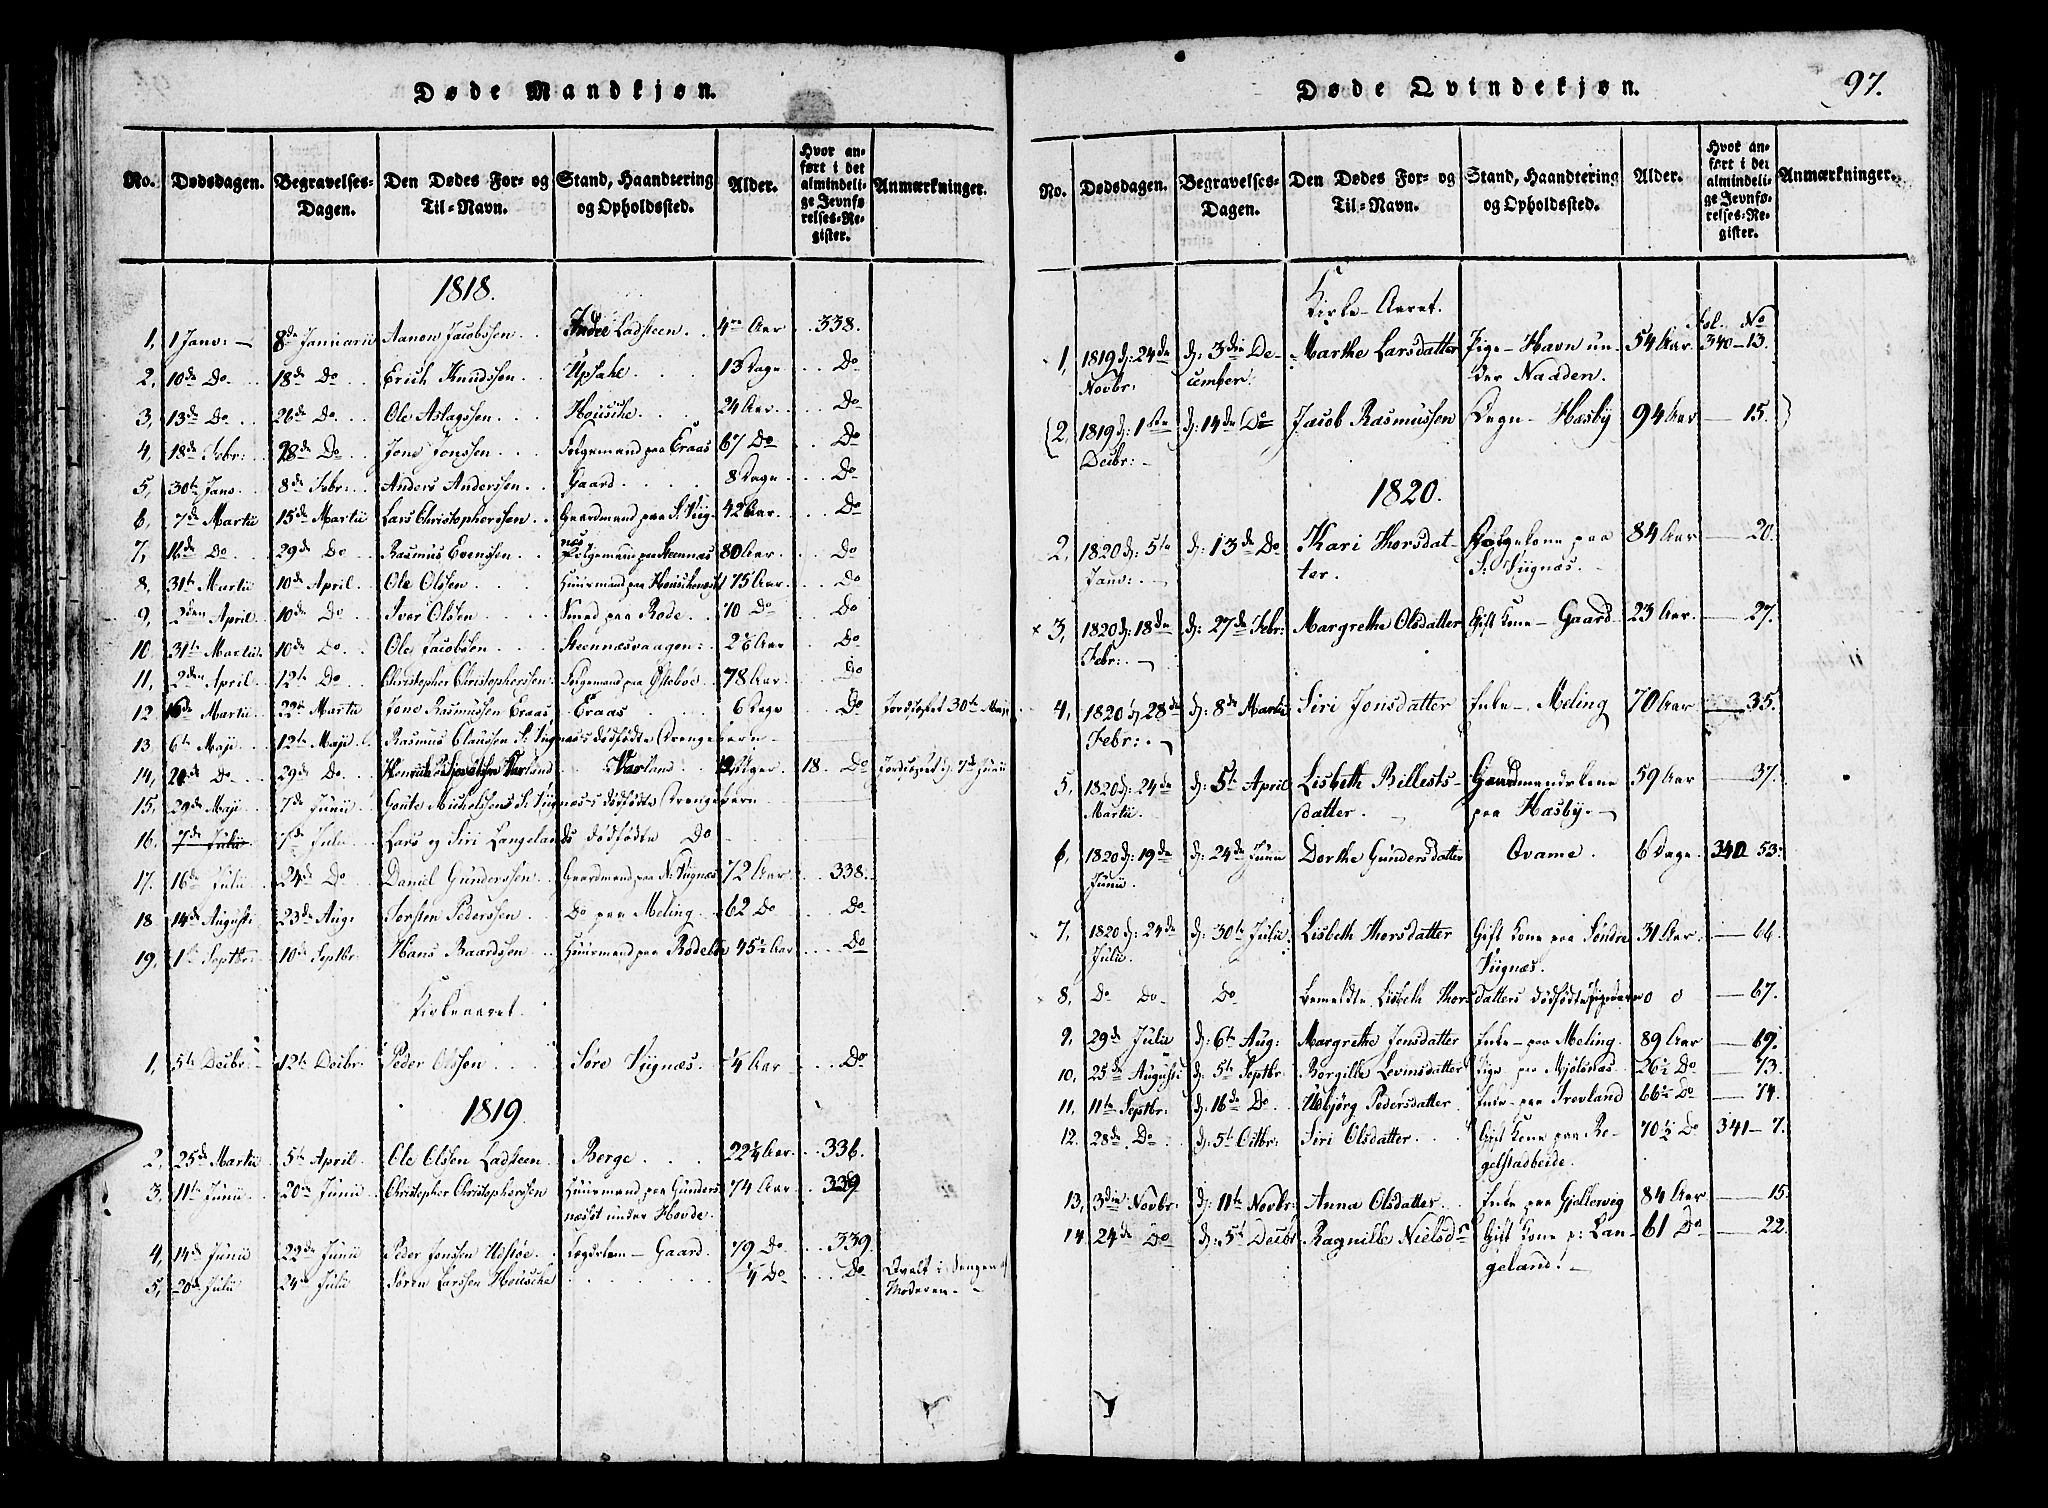 Døde Mandkjøn.
No. Dødsdagen. Begravelses-Dagen. Den Dødes For- og Til-Navn. Stand, Haandtering og Opholdssted. Alder. Hvor anført i det almindelige Jevnførelses-Register. Anmærkninger.
1818.
1, 1 Janv: 8de Januarii Aanon Jacobssen Indre Ladsteen 4re Aar 338.
2, 10de Do 18de Do Erich Knudssen Opsahe 13 Dage Do
3, 13de Do 26de Do Ole Aslagssen Housche 24 Aar Do
4, 18de Febr: 28de Do Jone Jonssen Folgemand paa Eraas 67 Do Do
5, 30te Janv. 8de Febr: Anders Anderssen Gaard 8 Dage Do
6, 7de Martii 15de Martii Lars Christopherssen Gaardmand paa S: Viig- 42 Aar Do
nes
7, 16de Do 29de Do Rasmus Evenssen Folgemand paa Steennæs 80 Aar Do
8, 31te Martii 10de April Ole Olssen Huusmand paa Houschenæset 75 Aar Do
9, 2den April 10de Do Iver Olsen Smed paa Rode 70 Do Do
10. 31te Martii 10de Do Ole Jacobsen Steennæsvaagen 2½ Aar Do
11, 2den April 12te Do Christopher Christopherssen Folgemand paa Østebøe 78 Aar Do
12 16de Martii 22de Martii Jone Rasmussen Eraas Eraas 6 Dage Do Jordfæstet 30te Maji
13. 6te Maji 12te Maji Rasmus Claussen S: Viignæs dødfødte Drengebarn
14, 20de Do 29de Do Varland 18. Do Jordfæstet d: 7de Junii
15. 29de Maji 7de Junii Goute Michelssens S: Viignæs dødfødte Drengebarn
16. 7de Julii 7de Julii Lars og Siri Langelands dødfødte Do
17. 16de Julii 24de Do Daniel Gunderssen Gaardmand paa N: Viignæs 72 Aar 338.
18 14de Augusti 23de Aug: Torsten Pederssen Do paa Meling 62 Do Do
19, 1ste Septbr: 10de Septbr Hans Baardssen Huusmand paa 45½ Aar Do
Kirkeaaret.
1, 5te Decbr: 12te Decbr: Peder Olssen Søre Viignæs ¼ Aar Do
1819.
2, 25de Martii 5te April Ole Olsen Ladsteen Berge 22¼ Aar 336.
3, 11te Junii 20de Junii Christopher Christopherssen Huusmand paa Gunders- 74 Aar 339
næset under Hovde.
4, 14de Junii 29de Junii Peder Jonsen Udstøe Lægdslem - Gaard 79 Do 339.
5, 20de Julii 24de Julii Søren Larssen Housche ¼ Do Do Qvalt i Sengen af
Moderen
Døde Qvindekjøn. 97.
No. Dødsdagen. Begravelses-Dagen. Den Dødes For- og Til-Navn. Stand, Haandtering og Opholdssted. Alder. Hvor anført i det almindelige Jevnførelses-Register. Anmærkninger.
Kirke-Aaret.
Fol. No
1, 1819 d: 24de d: 3die De- Marthe Larsdatter Pige - Havn un- 54 Aar 340 - 13.
Novbr: cember: der Naaden.
(2, 1819 d: 1ste d: 14de Do Jacob Rasmussen - Hæsby 94 Aar 15.)
Decbr:
1820.
2, 1820 d: 5te d: 13de Do Kari Thorsdat- Folgekone paa 84 Aar 20.
Janv: ter. S: Viignæs.
× 3, 1820 d: 18de d: 27de Febr: Margrethe Olsdatter Gift Kone - Gaard 23 Aar 27.
Febr:
4, 1820 d: 28de d: 8de Martii Siri Jonsdatter Enke - Meling 70 Aar 35.
Febr:
5, 1820 d: 24de d: 5te April Lisbeth Billests- Gaardmandskone 59 Aar 37.
Martii. datter. paa Hæsby.
6, 1820 d: 19de d: 24de Junii Dorthe Gundersdatter Qvame. 6 Dage. 340 53.
Junii.
7, 1820 d: 24de d: 30te Julii Lisbeth Thorsdatter Gift Kone paa Søndre 31 Aar 66.
Julii. Viignæs.
8, Do Do Do bemeldte Lisbeth Thorsdatters dødfødte Pigebarn 0 0 67.
9, 29de Julii d: 6te Aug: Margrethe Jonsdatter Enke - paa Meling 89 Aar 69.
10, 25de Augusti d: 5te Septbr: Borgille Levinsdatter Pige paa Mjølsnæs 26½ Do 73.
11, 11te Septbr: d: 16de Do Usbjörg Pedersdatter Enke - paa Trovland 66½ Do 74.
12. 28de Do d: 5te Octbr: Siri Olsdatter Gift Kone paa Re- 70½ Do 341 - 7.
gelstadbeide.
13, 3die Novbr: d: 11te Novbr: Anna Olsdatter Enke paa Gjellerveg 84 Aar 15.
14 24de Do d: 5te Decbr Ragnille Nielsdr Gift Kone p: Lan- 61 Do 22.
geland.